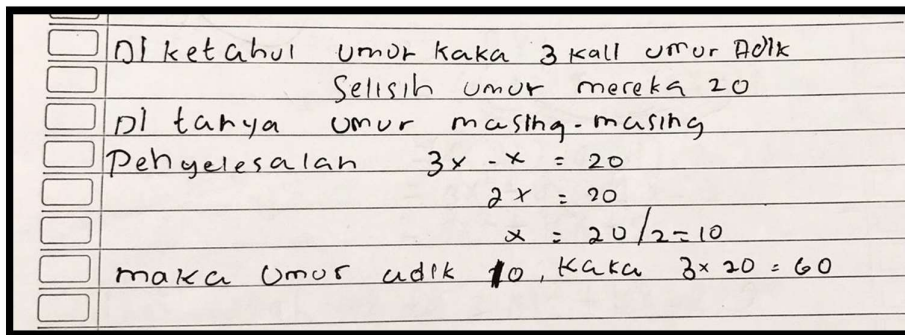 Di ketahui umur kaka 3 kali umur Adik
Selisih umur mereka 20
Di tanya umur masing-masing
Penyelesaian 3x - x = 20
2x = 20
x = 20/2=10
maka umur adik 10, kaka 3x 20 = 60